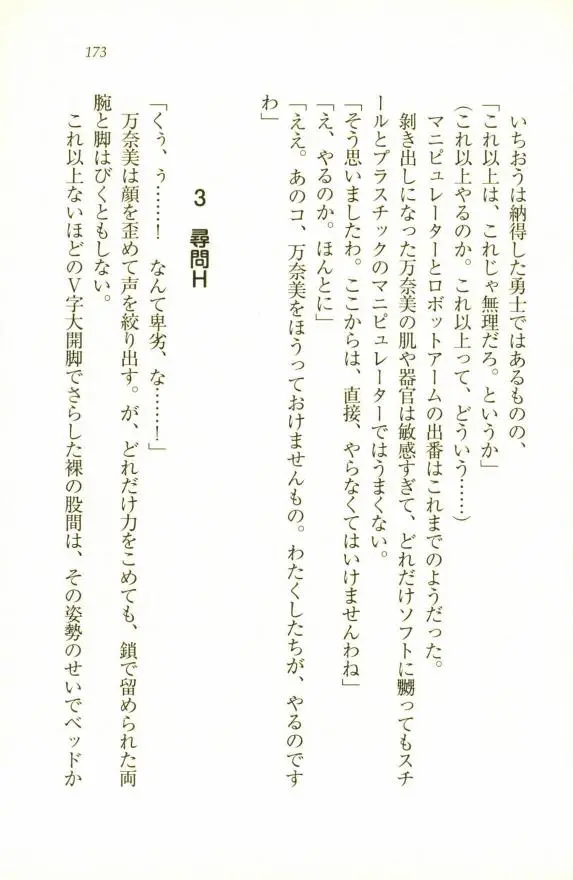 173
いちおうは納得した勇士ではあるものの、
「これ以上は、これじゃ無理だろ。というか」
(これ以上やるのか。これ以上って、どういう……)
マニピュレーターとロボットアームの出番はこれまでのようだった。
剝き出しになった万奈美の肌や器官は敏感すぎて、どれだけソフトに嬲ってもスチ
ールとプラスチックのマニピュレーターではうまくない。
「そう思いましたわ。ここからは、直接、やらなくてはいけませんわね」
「え、やるのか。ほんとに」
「ええ。あのコ、万奈美をほうっておけませんもの。わたくしたちが、やるのです
わ」
3 尋問H
「くぅ、ぅ……! なんて卑劣、な……!」
万奈美は顔を歪めて声を絞り出す。が、どれだけ力をこめても、鎖で留められた両
腕と脚はびくともしない。
これ以上ないほどのV字大開脚でさらした裸の股間は、その姿勢のせいでベッドか